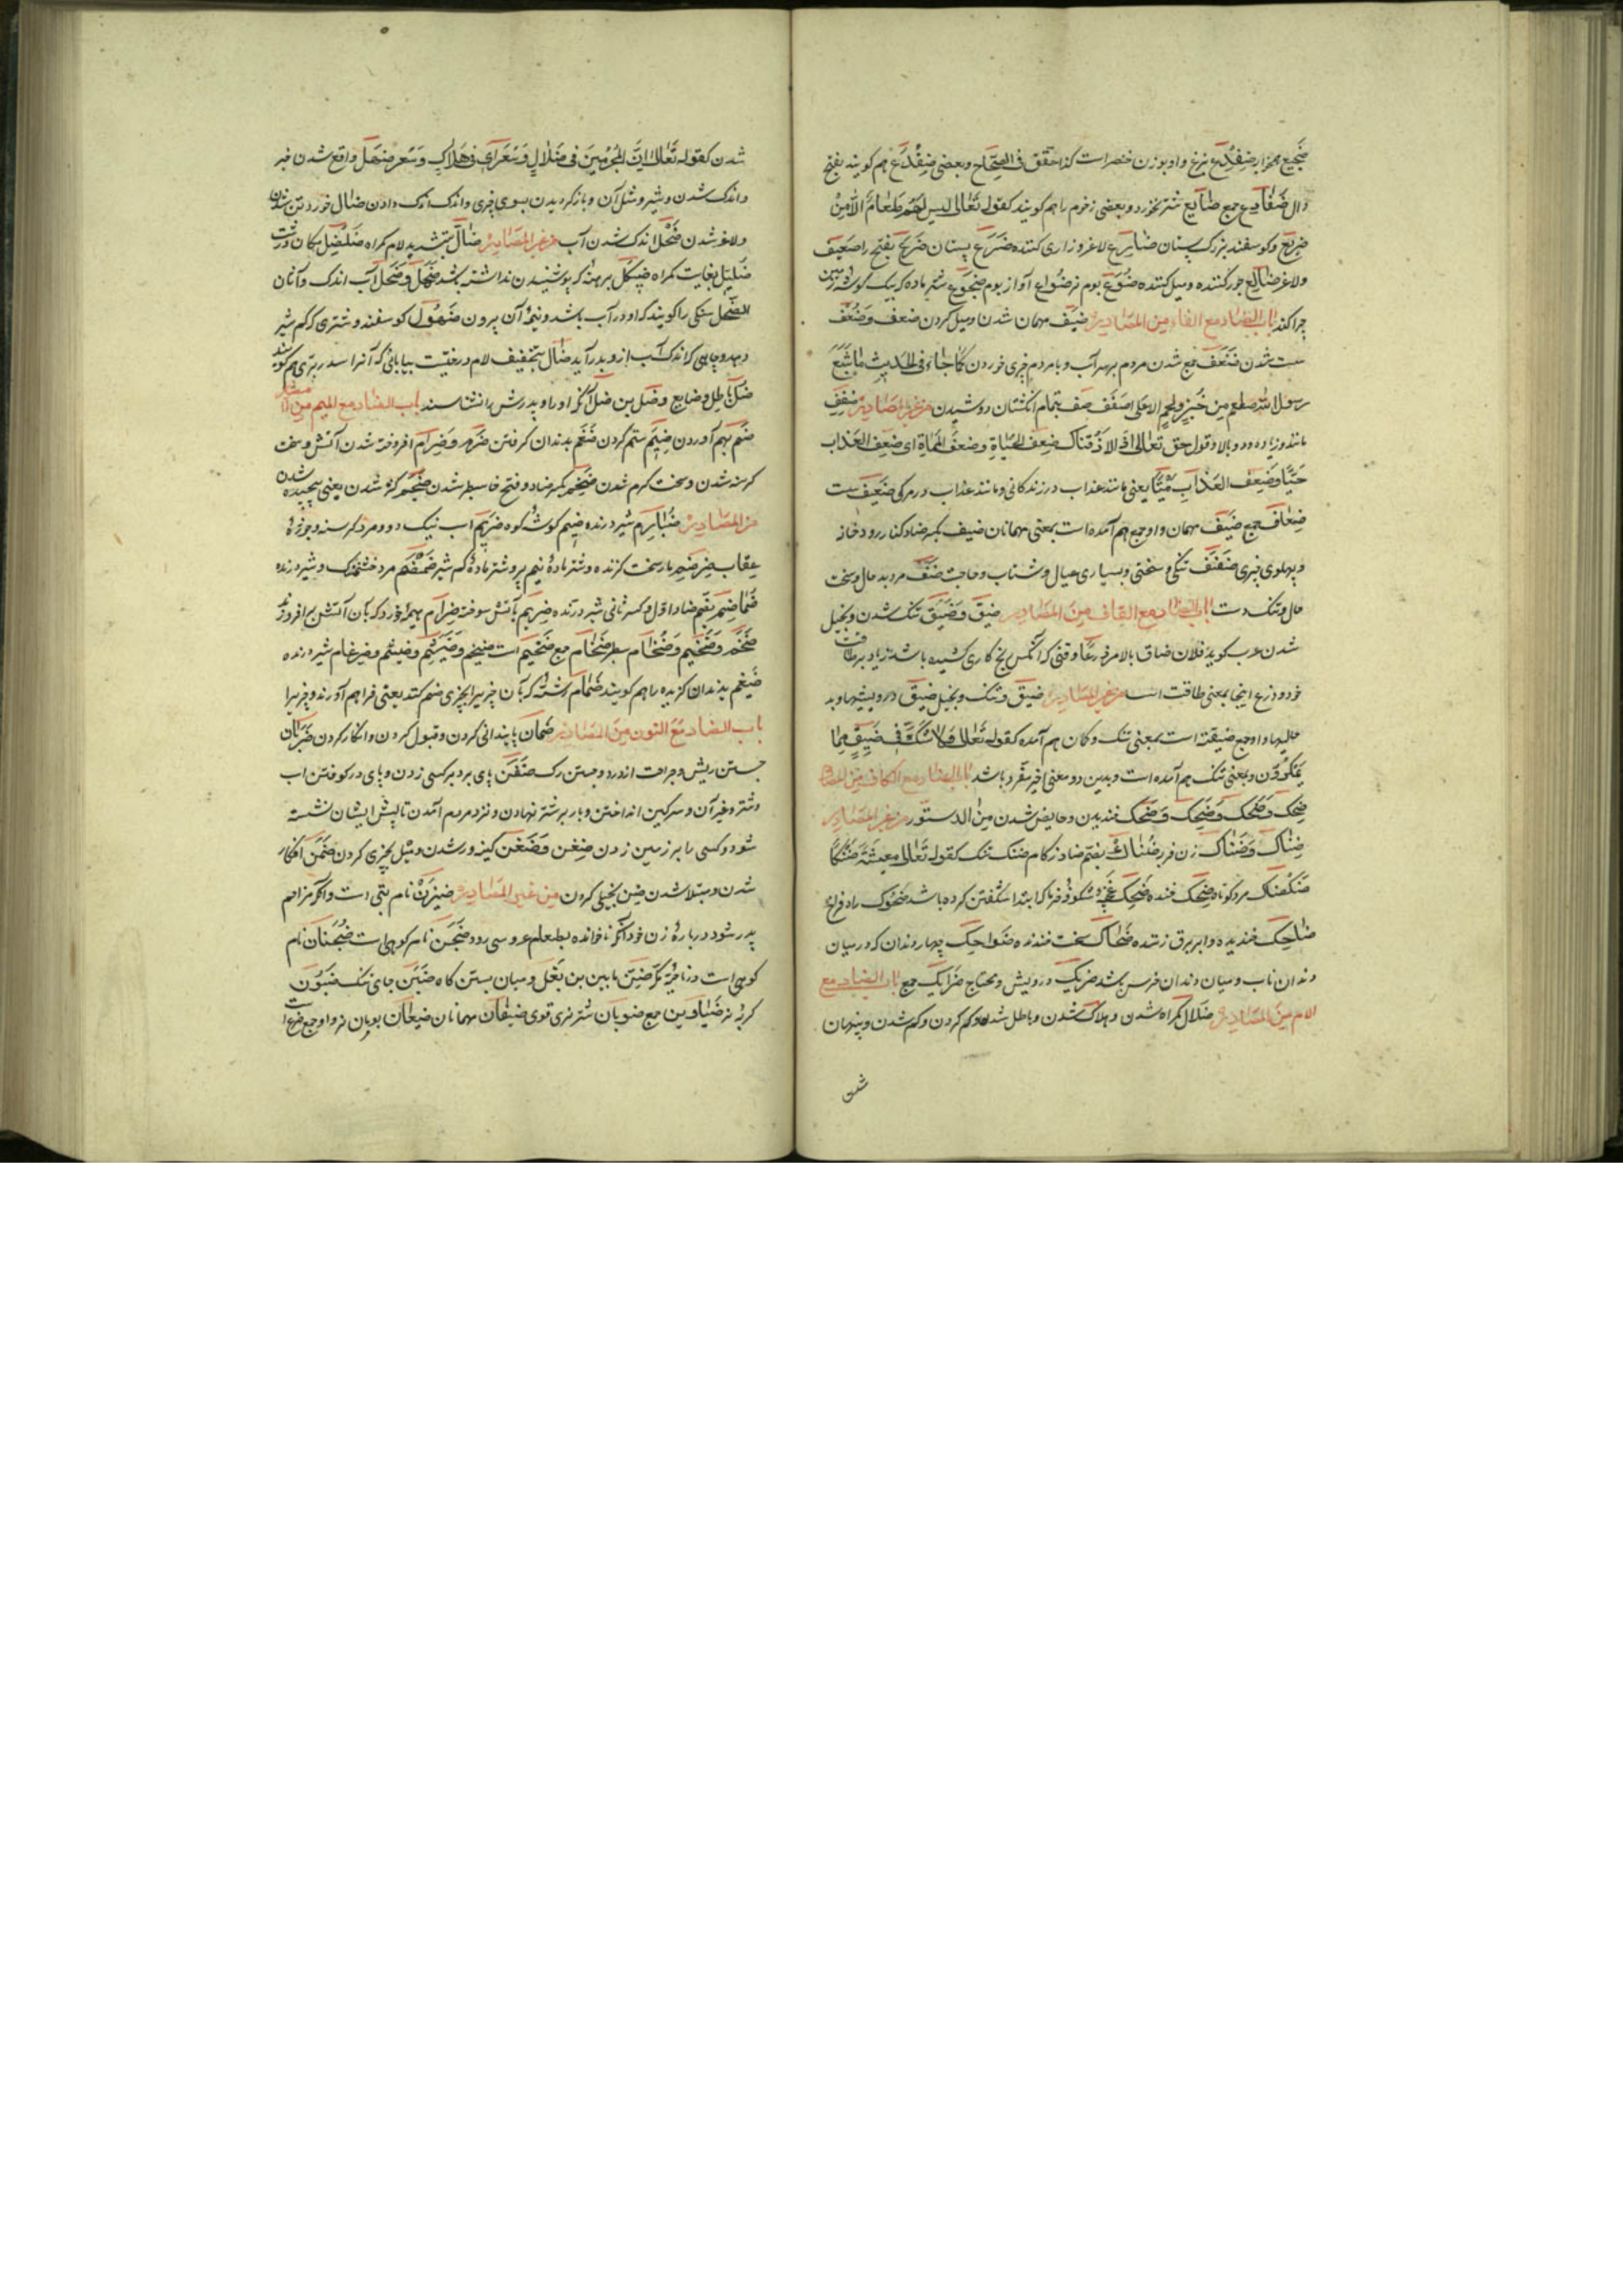 ضجیع همزار ضفدع بزغ واو بوزن خنصر است کذا حقق فی الصحاح و بعضی ضفدع هم کویند بفتح
دال ضفادع جمع ضایع شتر نخورد و بعضی زخوم را هم کویند کقوله تعالی لیس لهم طعام الا من
ضریع و کوسفند بزرک پستان ضارع لاغر و زاری کننده ضرع پستان ضریع بفتح را ضعیف
ولاغر ضالع جور کننده و میل کننده ضوع بوم نر ضواع آواز بوم ضجوع شتر ماده که بیک کوشه زمین
چرا کند باب الضاد مع الفاء من المصادر ضیف مهمان شدن و میل کردن ضعف و ضعف
سست شدن ضفف جمع شدن مردم بر سر آب و با مردم چیزی خوردن کما جاء فی الحدیث ما شبع
رسول الله صلعم من خبز ولحم الا علی ضفف ضف بتمام انکشتان دوشیدن من غیر المصادر ضعف
مانند و زیاده و دو بالا و قول حق تعالی اذا لاذقناک ضعف الحیاة وضعف المماة ای ضعف العذاب
حیّا وضعف العذاب میّتا یعنی مانند عذاب در زندکانی و مانند عذاب در مرکی ضعیف سست
ضعاف جمع ضیف مهمان و او جمع هم آمده است بمعنی مهمانان ضیف بکسر ضاد کنار رودخانه
و پهلوی چیزی ضفف تنکی و سختی و بسیاری عیال و شتاب و حاجت ضفف مرد بد حال و سخت
حال و تنک دست باب الضاد مع القاف من المصادر ضیق و ضیق تنک شدن و بخیل
شدن عرب کوید فلان ضاق بالامر ذرعا وقتی که آنکس بیخ کاری کشیده باشد زیاد بر طاقت
خود و ذرع اینجا بمعنی طاقت است من غیر المصادر ضیق و تنک و بخیل ضیق درویشیها و بد
حالیها و او جمع ضیقة است بمعنی تنک و کان هم آمده کقوله تعالی ولا تک فی ضیق مما
یمکرون و بمعنی تنک هم آمده است و بدین دو معنی اخیر مفرد باشد باب الضاد مع الکاف من المصادر
ضحک و ضحک و ضحک و ضحک خندیدن و حایض شدن من الدستور من غیر المصادر
ضناک و ضناک زن فربه ضناک بضم ضاد زکام ضنک تنک کقوله تعالی معیشة ضنکا
ضحک خنده ضحک غنچه و شکوفه خرما که ابتدا شکفتن کرده باشد ضحوک راه فراخ
ضاحک خندیده و ابر برق زننده ضحاک سخت خندنده ضواحک چهار دندان که در میان
دندان ناب و میان دندان ضرس باشد ضریک درویش و محتاج ضرایک جمع باب الضاد مع
اللام من المصادر ضلال کمراه شدن و هلاک شدن و باطل شدن و کم کردن و کم شدن و پنهان
شدن
شدن کقوله تعالی ان المجرمین فی ضلال وسعر ای فی هلاک وسعر ضهل واقع شدن خبر
واندک شدن و شیر و مثل آن و بازکردیدن بسوی چیزی و اندک اندک دادن ضال خورد تن شدن
ولاغر شدن ضحل اندک شدن آب من غیر المصادر ضال بتشدید لام کمراه ضلضل مکان درشت
ضلیل بغایت کمراه ضیکل برهنه که پوشیدن نداشته باشد ضحل و ضحل آب اندک و آتان
الضحل سنکی را کویند که او در آب باشد و نیمه آن بیرون ضهول کوسفند و شتری که کم شیر
دهد و چاهی که اندک آب ازو بدر آید ضال بتخفیف لام درختیست بیابانی که آنرا سدر بری هم کویند
ضل باطل و ضایع و ضل بن ضل آنکه او را و پدرش را نشناسند باب الضاد مع المیم من المصادر
ضم بهم آوردن ضیم ستم کردن ضغم بدندان کرفتن ضرم و ضرام افروخته شدن آتش و سخت
کرسنه شدن و سخت کرم شدن ضخم بکسر ضاد و فتح خا سطبر شدن ضجم کژ شدن یعنی پیچیده شدن
من غیر المصادر ضبارم شیر درنده ضیم کوشه کوه ضرم اسب نیک دو و مرد کرسنه و جوزه
عقاب مار سخت کزنده و شتر ماده کم شیر مرد خشمناک و شیر درنده
ضماضم بضم ضاد اول و کسر ثانی شیر درنده ضریم بآتش سوخته ضرام هیمه خورد که بآن آتش برافروزند
ضخم و ضخیم و ضخام سطبر ضخام جمع ضخیم است ضیغم و ضیثم و ضرغام شیر درنده
ضیغم بدندان کزیده را هم کویند ضمام رشته که بآن چیزیرا بچیزی ضم کنند یعنی فراهم آورند و چیزیرا
باب الضاد مع النون من المصادر ضمان پایندانی کردن و قبول کردن و انکار کردن ضربان
جستن ریش و جراحت از درد و جستن رک ضفن پای بر دبر کسی زدن و پای در کوفتن اسب
و شتر و غیر آن و سرکین انداختن و بار بر شتر نهادن و نزد مردم آمدن تا پیش ایشان نشسته
شود و کسی را بر زمین زدن ضغن و ضغن کینه ور شدن و میل بچیزی کردن ضمن افکار
شدن و مبتلا شدن ضن بخیلی کردن من غیر المصادر ضیزن نام بتی است و آنکه مزاحم
پدر شود درباره زن خود آنکه ناخوانده بطعام عروسی رود ضجن نام کوهی است ضجنان نام
کوهی است در ناحیه مکه ضبن مابین بن بغل و میان بستن کاه ضبن جای تنک ضیون
کربه نر ضیاون جمع ضوبان شتر نری قوی ضیفان مهمانان ضیعان بومان نر و او جمع ضوع است